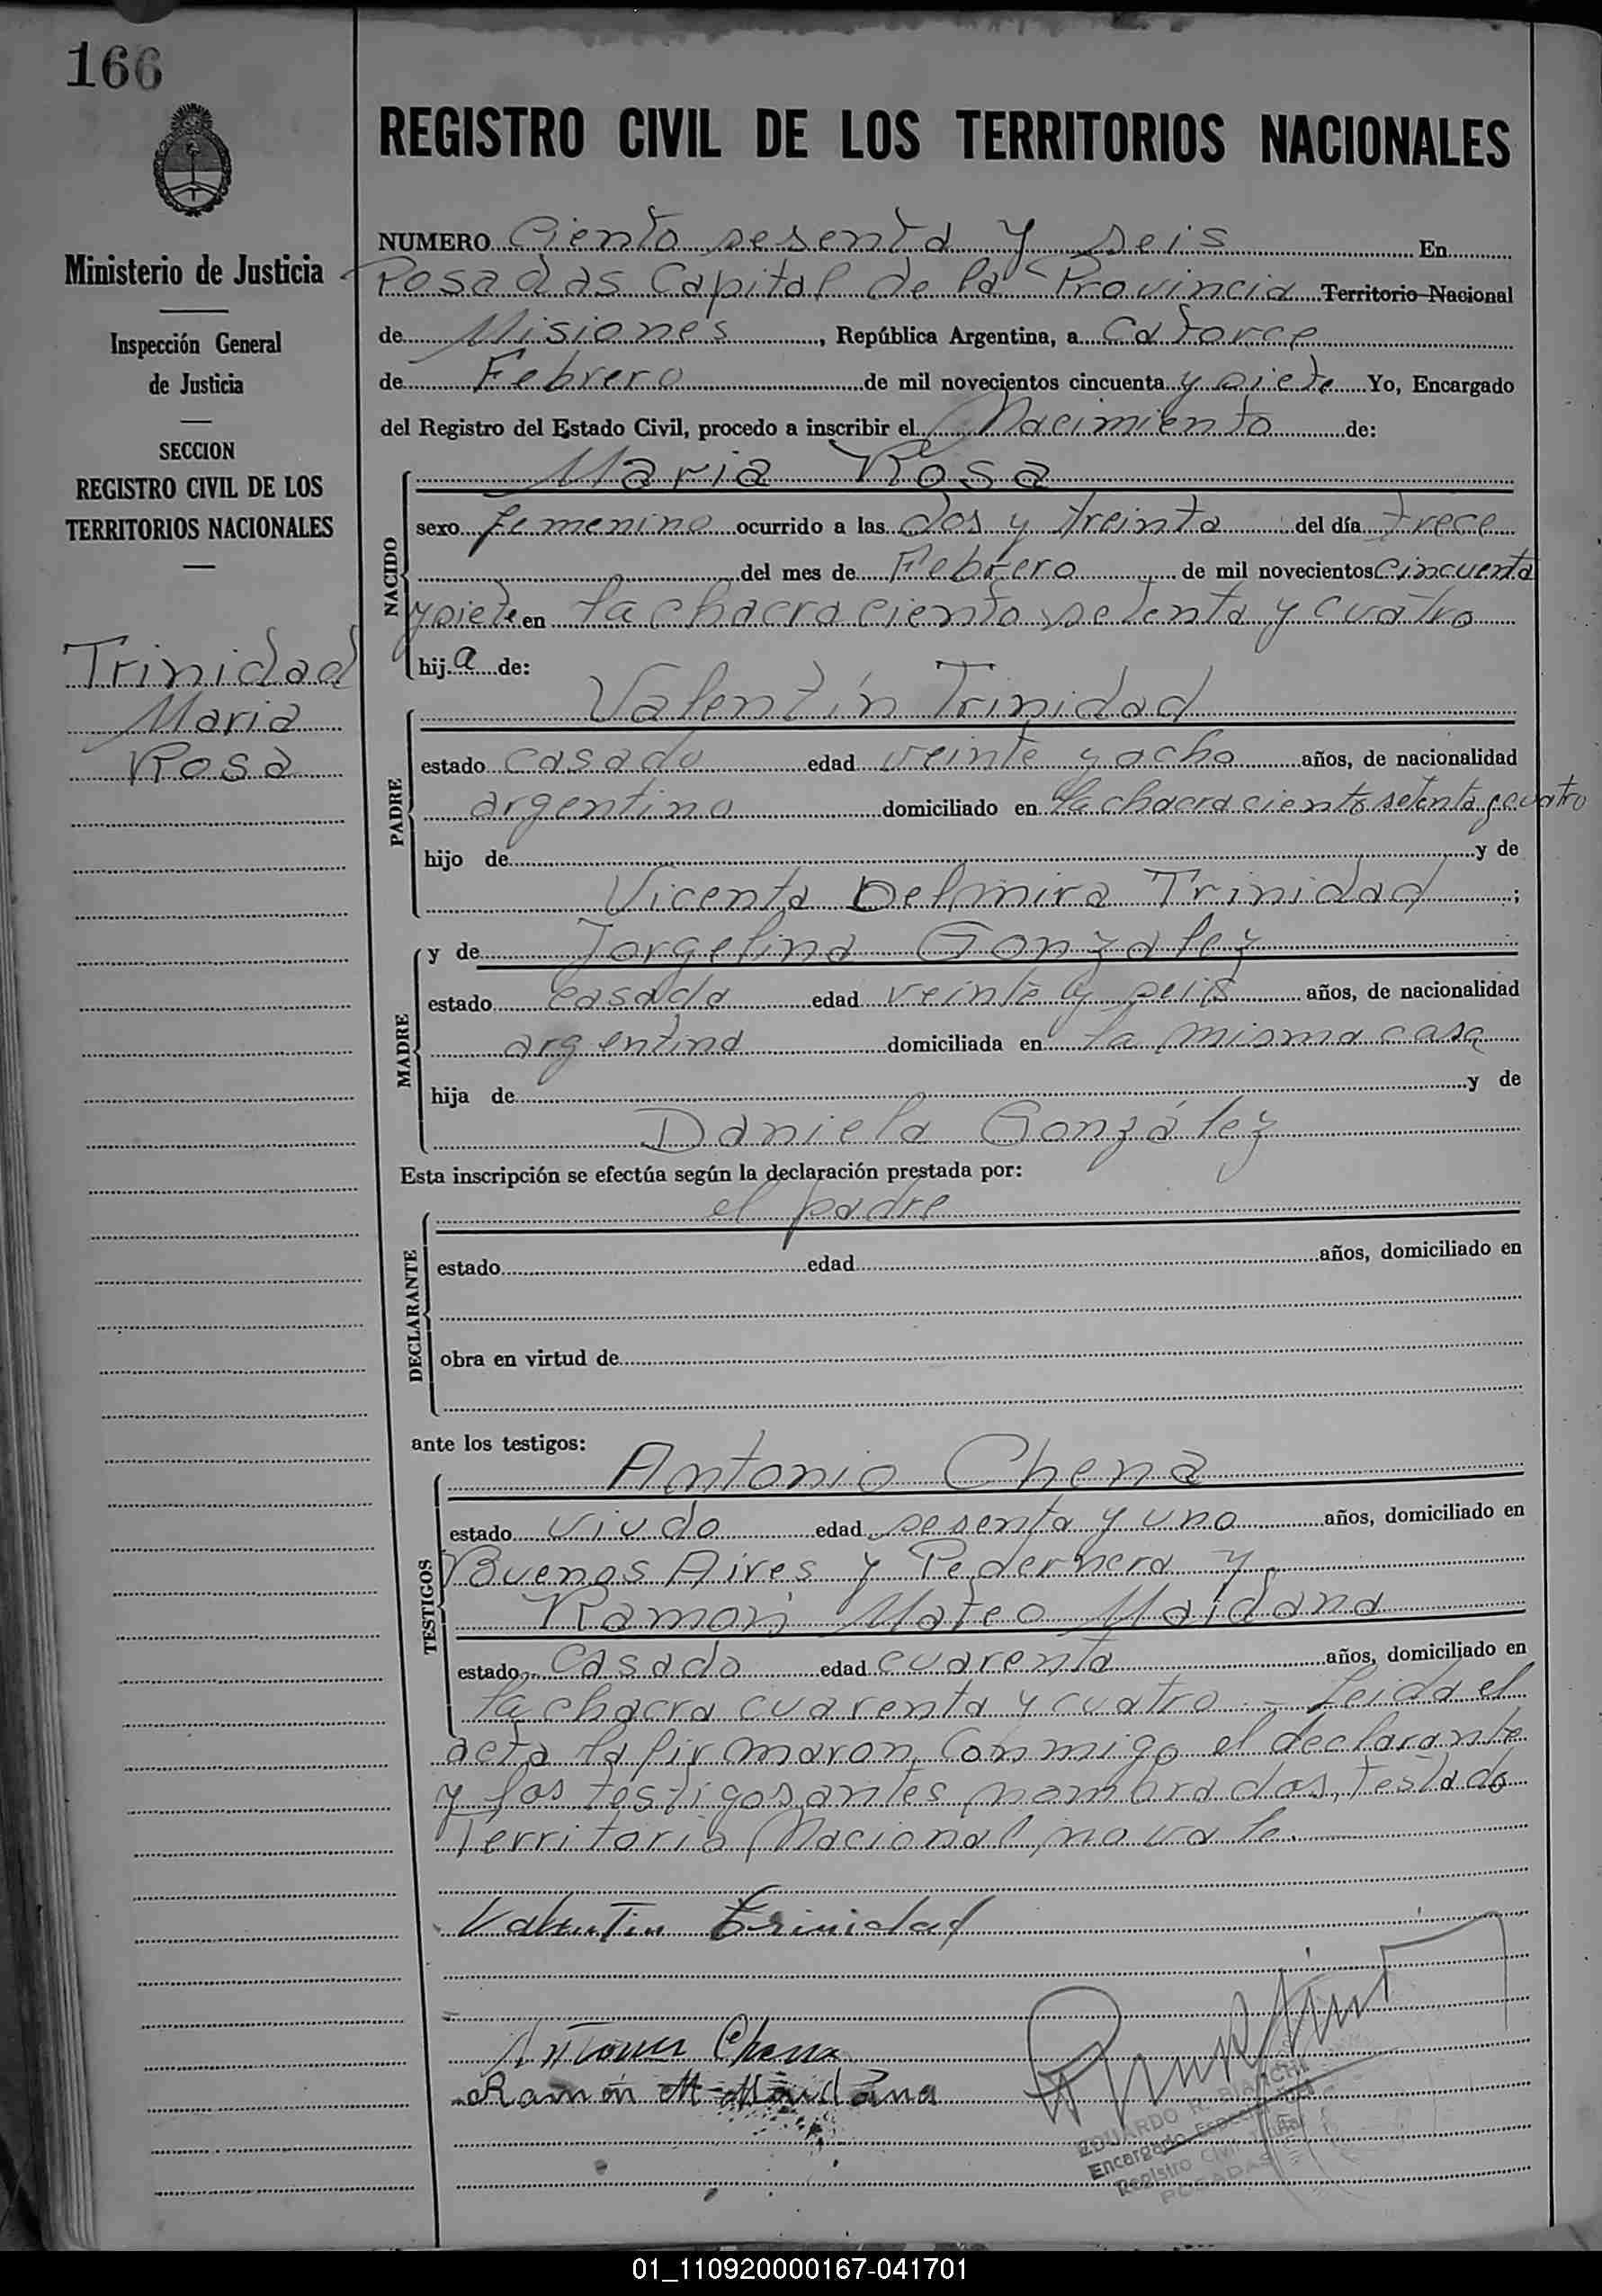 166
Ministerio de Justicia
Inspección General
de Justicia
SECCION
REGISTRO CIVIL DE LOS
TERRITORIOS NACIONALES
Trinidad
Maria
Rosa
REGISTRO CIVIL DE LOS TERRITORIOS NACIONALES
NUMERO Ciento sesenta y seis En
Posadas Capital de la Provincia Territorio Nacional
de Misiones, República Argentina, a catorce
de Febrero de mil novecientos cincuenta y siete Yo, Encargado
del Registro del Estado Civil, procedo a inscribir el Nacimiento de:
NACIDO
Maria Rosa
sexo femenino ocurrido a las dos y treinta del día trece
del mes de Febrero de mil novecientos cincuenta
y siete en la chacra ciento setenta y cuatro
hij a de:
PADRE
Valentín Trinidad
estado casado edad veinte y ocho años, de nacionalidad
argentino domiciliado en la chacra ciento setenta y cuatro
hijo de y de
Vicenta Delmira Trinidad ;
MADRE
y de Jorgelina Gonzalez
estado casada edad veinte y seis años, de nacionalidad
argentina domiciliada en la misma casa
hija de y de
Daniela González
Esta inscripción se efectúa según la declaración prestada por:
DECLARANTE
el padre
estado edad años, domiciliado en
obra en virtud de
ante los testigos:
TESTIGOS
Antonio Chena
estado viudo edad sesenta y uno años, domiciliado en
Buenos Aires y Pedernera y
Ramón Mateo Maidana
estado casado edad cuarenta años, domiciliado en
la chacra cuarenta y cuatro - Leida el
acta la firmaron conmigo el declarante
y los testigos antes nombrados, testado
Territorio Nacional, no vale.
Valentin Trinidad
Antonio Chena
Ramón M. Maidana
EDUARDO R. BIANCHI
Encargado
Registro Civil
POSADAS
01_110920000167-041701